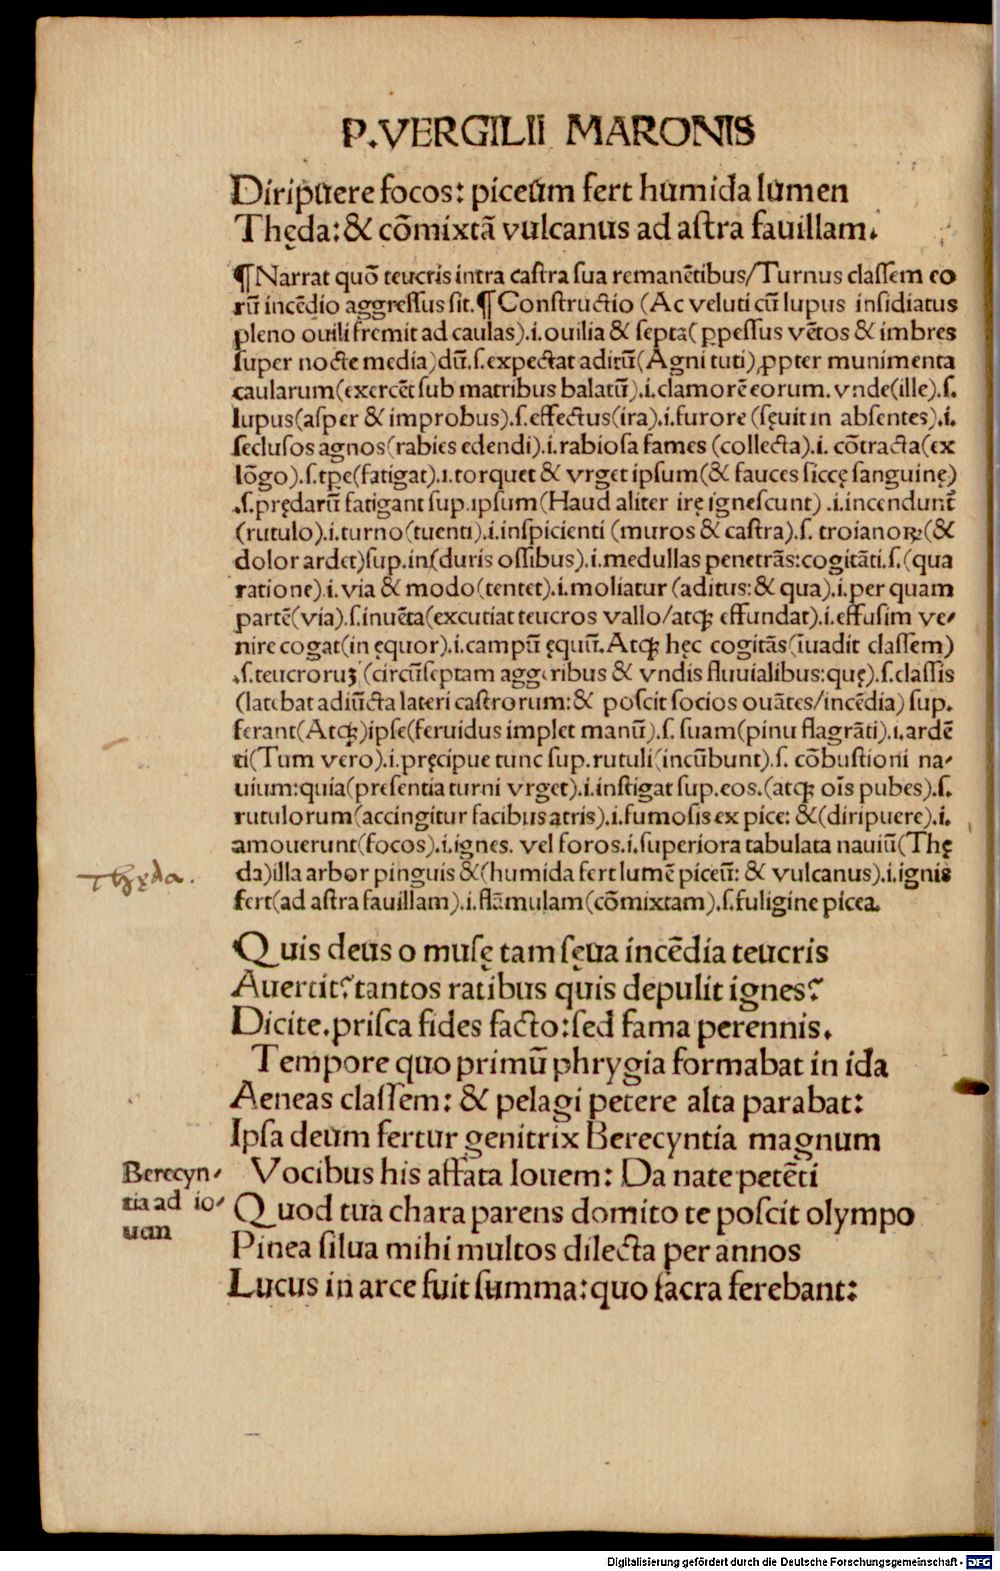 P.VERGILII MARONIS
Diripuere focos: piceum fert humida lumen
Thęda: & cōmixtā vulcanus ad astra fauillam.
¶Narrat quō teucris intra castra sua remanētibus/Turnus classem eo
rū incēdio aggressus sit.¶Constructio (Ac veluti cū lupus insidiatus
pleno ouili fremit ad caulas).i.ouilia & septa(ꝑpessus vētos & imbres
super nocte media)dū.s.expectat aditū(Agni tuti)ꝓpter munimenta
caularum(exercēt sub matribus balatū).i.clamorē eorum. vnde(ille).s.
lupus(asper & improbus).s.effectus(ira).i.furore (sęuit in absentes).i.
seclusos agnos(rabies edendi).i.rabiosa fames (collecta).i. cōtracta(ex
lōgo).s.tꝑe(fatigat).i.torquet & vrget ipsum(& fauces siccę sanguinę)
.s.prędarū fatigant sup.ipsum(Haud aliter irę ignescunt) .i.incendunt̄
(rutulo).i.turno(tuenti).i.inspicienti (muros & castra).s. troianoꝝ(&
dolor ardet)sup.in(duris ossibus).i.medullas penetrās:cogitāti.s.(qua
ratione).i. via & modo(tentet).i.moliatur (aditus:& qua).i.per quam
partē(via).s.inuēta(excutiat teucros vallo/atqꝫ effundat).i.effusim ve-
nire cogat(in ęquor).i.campū ęquū.Atqꝫ hęc cogitās(īuadit classem)
.s.teucroruꝫ (circūseptam aggeribus & vndis fluuialibus:quę).s.classis
(latebat adiūcta lateri castrorum:& poscit socios ouātes/incēdia) sup.
ferant(Atqꝫ)ipse(feruidus implet manū).s. suam(pinu flagrāti).i.ardē
ti(Tum vero).i.pręcipue tunc sup.rutuli(incūbunt).s. cōbustioni na-
uium:quia(presentia turni vrget).i.instigat sup.eos.(atqꝫ oīs pubes).s.
rutulorum(accingitur facibus atris).i.fumosis ex pice: &(diripuere).i.
amouerunt(focos).i.ignes. vel foros.i.superiora tabulata nauiū(Thę
da)illa arbor pinguis &(humida fert lumē piceū: & vulcanus).i.ignis
fert(ad astra fauillam).i.flāmulam(cōmixtam).s.fuligine picea.
Thęda.
Quis deus o musę tam sęua incēdia teucris
Auertit? tantos ratibus quis depulit ignes?
Dicite.prisca fides facto:sed fama perennis.
Tempore quo primū phrygia formabat in ida
Aeneas classem: & pelagi petere alta parabat:
Ipsa deum fertur genitrix Berecyntia magnum
Vocibus his affata Iouem: Da nate petēti
Quod tua chara parens domito te poscit olympo
Pinea silua mihi multos dilecta per annos
Lucus in arce fuit summa:quo sacra ferebant:
Berecyn-
tia ad io-
uem
Digitalisierung gefördert durch die Deutsche Forschungsgemeinschaft - DFG